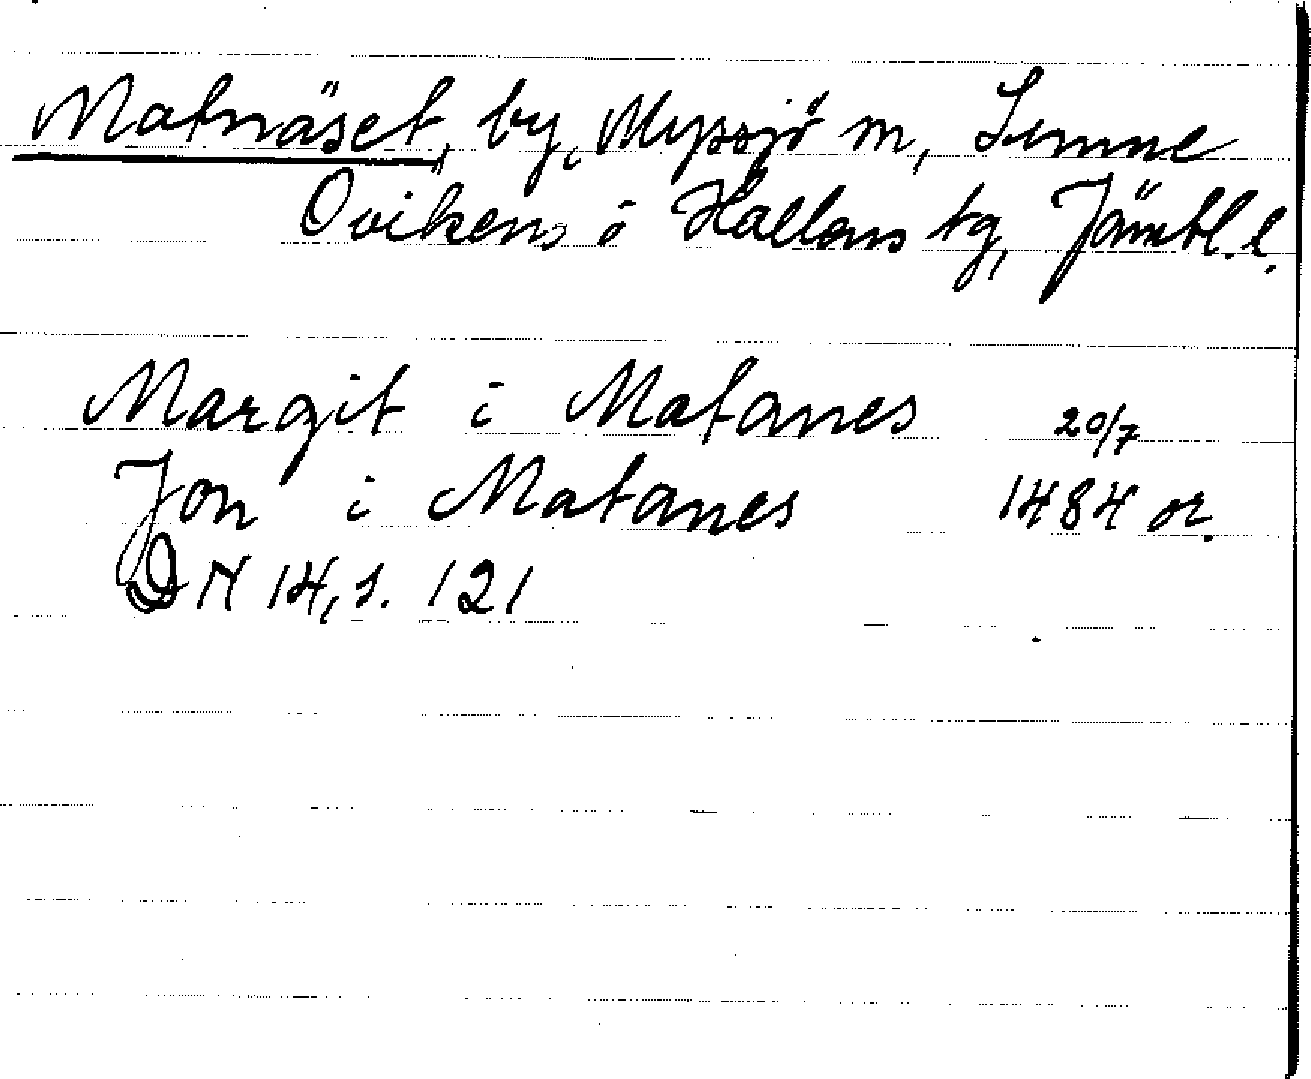 Matnäset, by, Myssjö sn, Sunne
Ovikens o Hallens tg, Jämtl. l.
Margit i Matanes 20/7
Jon i Matanes 1484 or.
DN 14, s. 121